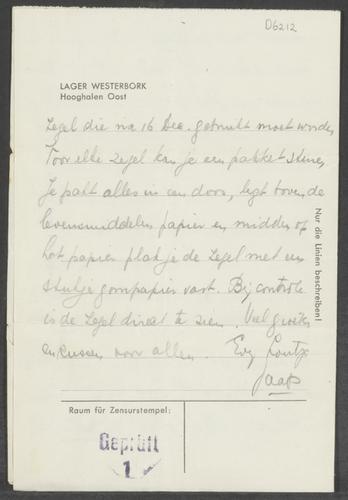 D6212
LAGER WESTERBORK
Hooghalen Oost
Zegel die na 16 Dec. gebruikt moet worden
Voor elke zegel kan je een pakket sturen
Je pakt alles in een doos, legt boven de
levensmiddelen papier en midden op
het papier plak je de zegel met een
stukje gompapier vast. Bij controle
is de zegel direct te zien. Veel groeten
en kussen voor allen.
Jaap
Nur die Linien beschreiben!
Raum für Zensurstempel:
Geprüft
1